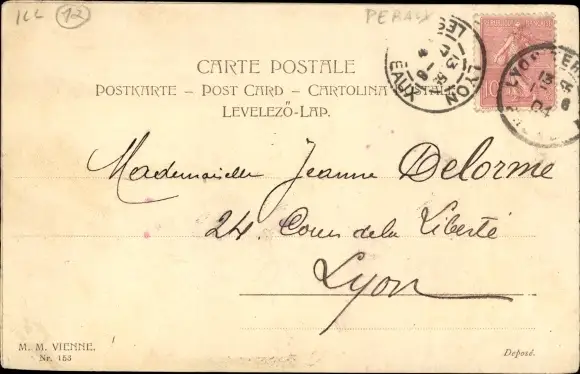 ILL 12
PERAUX
CARTE POSTALE
POSTKARTE – POST CARD – CARTOLINA POSTALE
LEVELEZŐ-LAP.
LYON
LES
EAUX
13
LYON
13
04
10
Mademoiselle Jeanne Delorme
24. Cours de la Liberté
Lyon
M. M. VIENNE.
Nr. 153
Deposé.